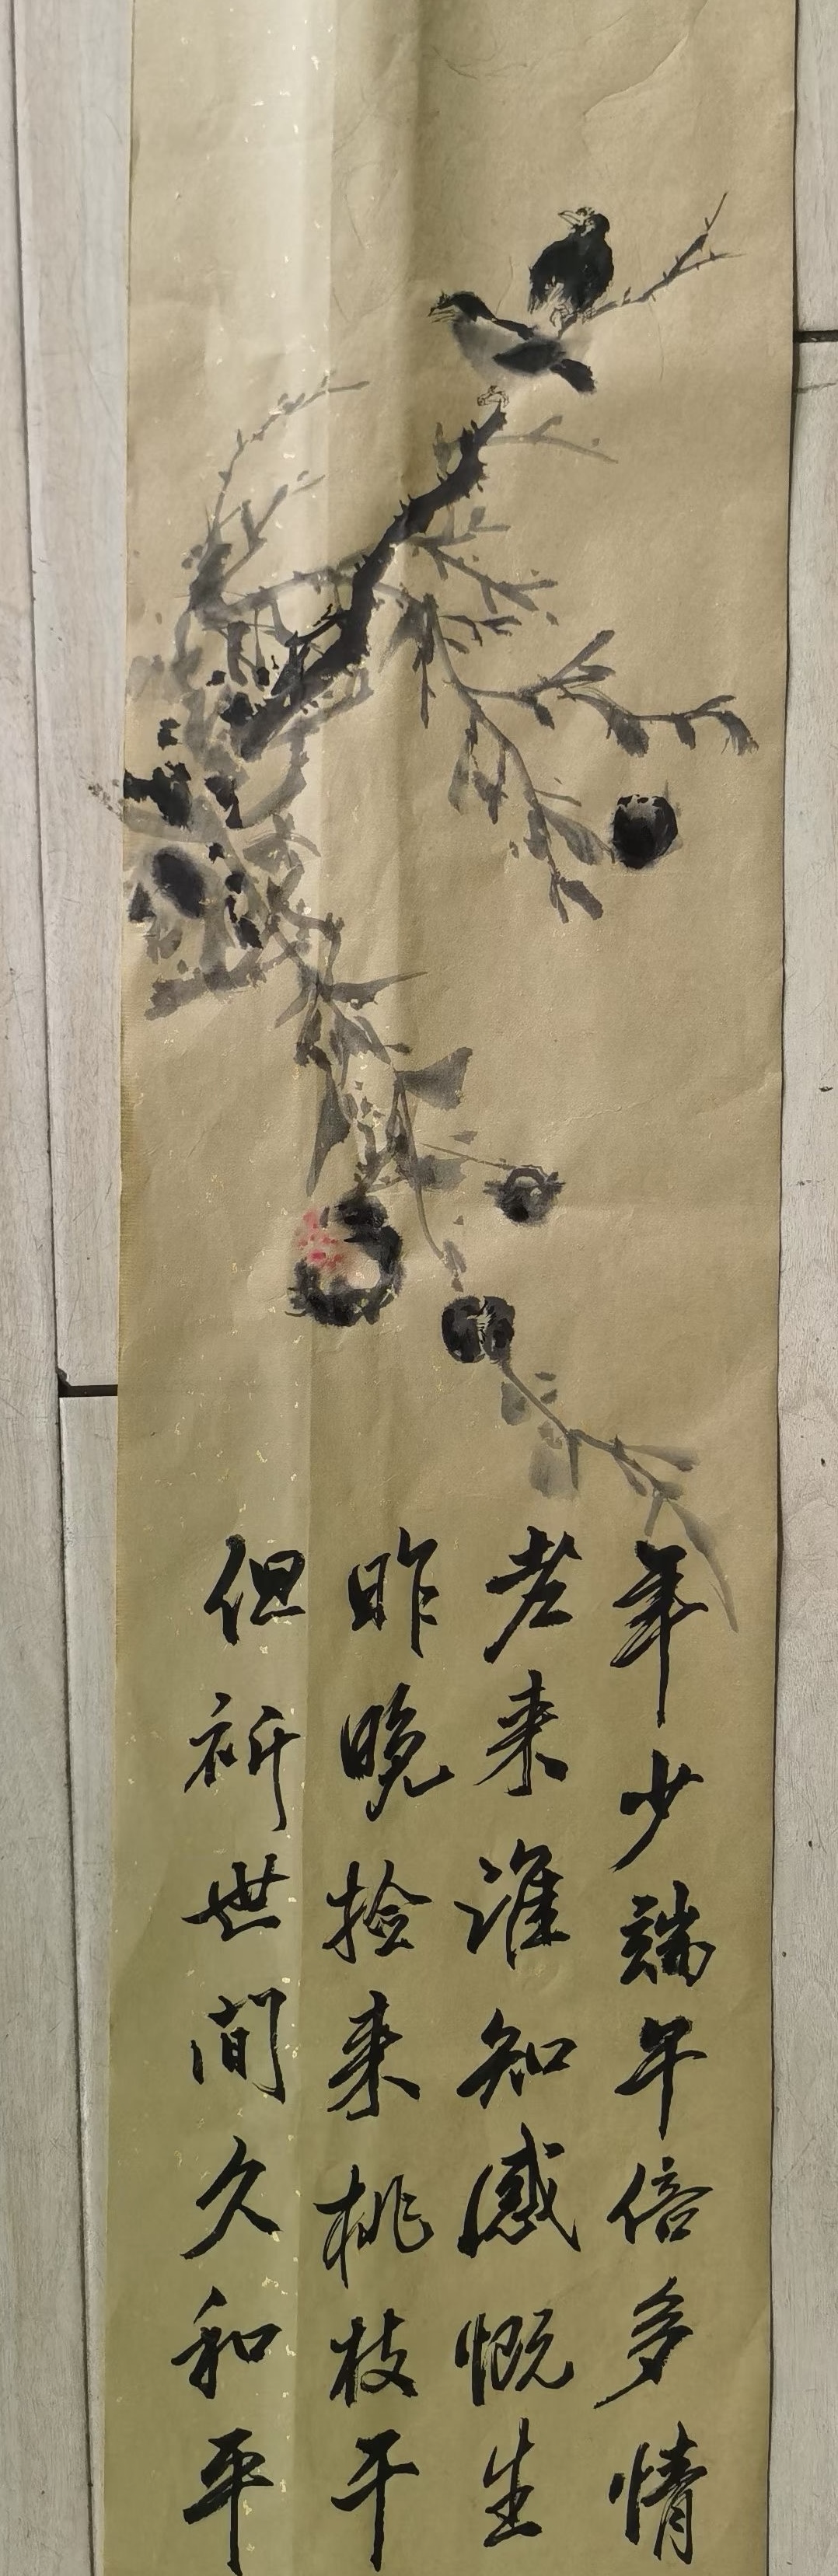 年少端午倍多情
老来谁知感慨生
昨晚捡来桃枝干
但祈世间久和平